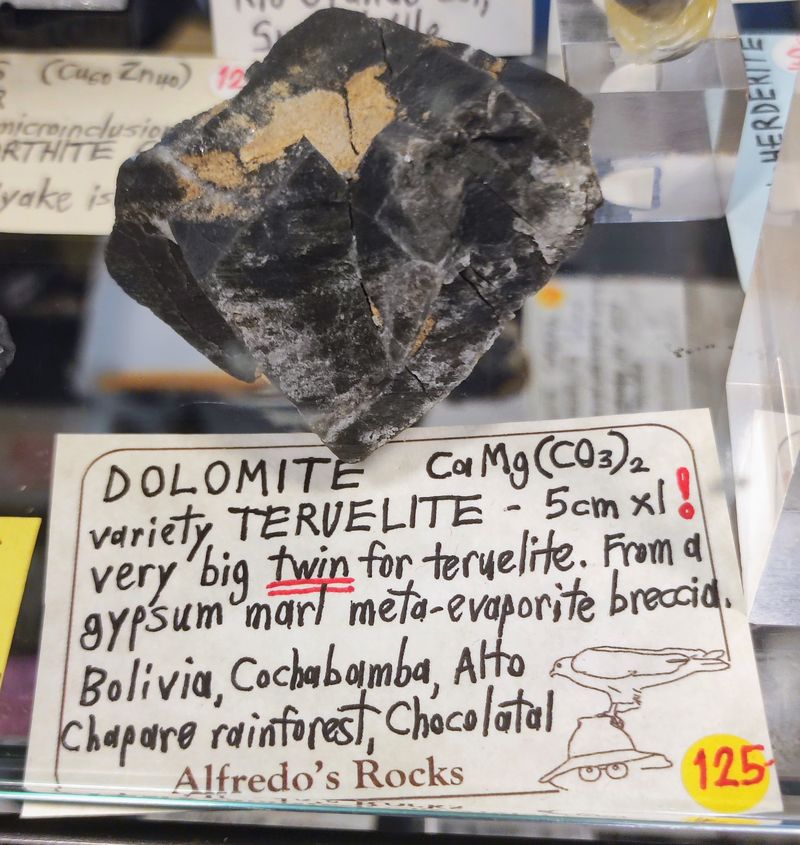 (Cu60 Zn40)
microinclusion
ORTHITE
iyake is
HERDERITE
DOLOMITE CaMg(CO3)2
variety TERUELITE - 5cm xl!
very big twin for teruelite. From a
gypsum marl meta-evaporite breccia.
Bolivia, Cochabamba, Alto
Chapare rainforest, Chocolatal
Alfredo's Rocks
125-